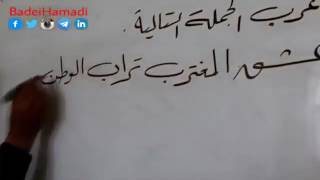 BadeiHamadi
عرب الجملة التالية .
عشق المغترب تراب الوطن